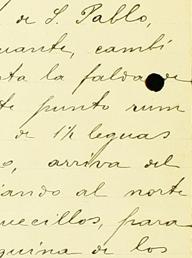 de S. Pablo,
uante, cambi
ta la falda de
te punto rum
de 1½ leguas
o, arriva del
iando al norte
uecillos, para
quina de los